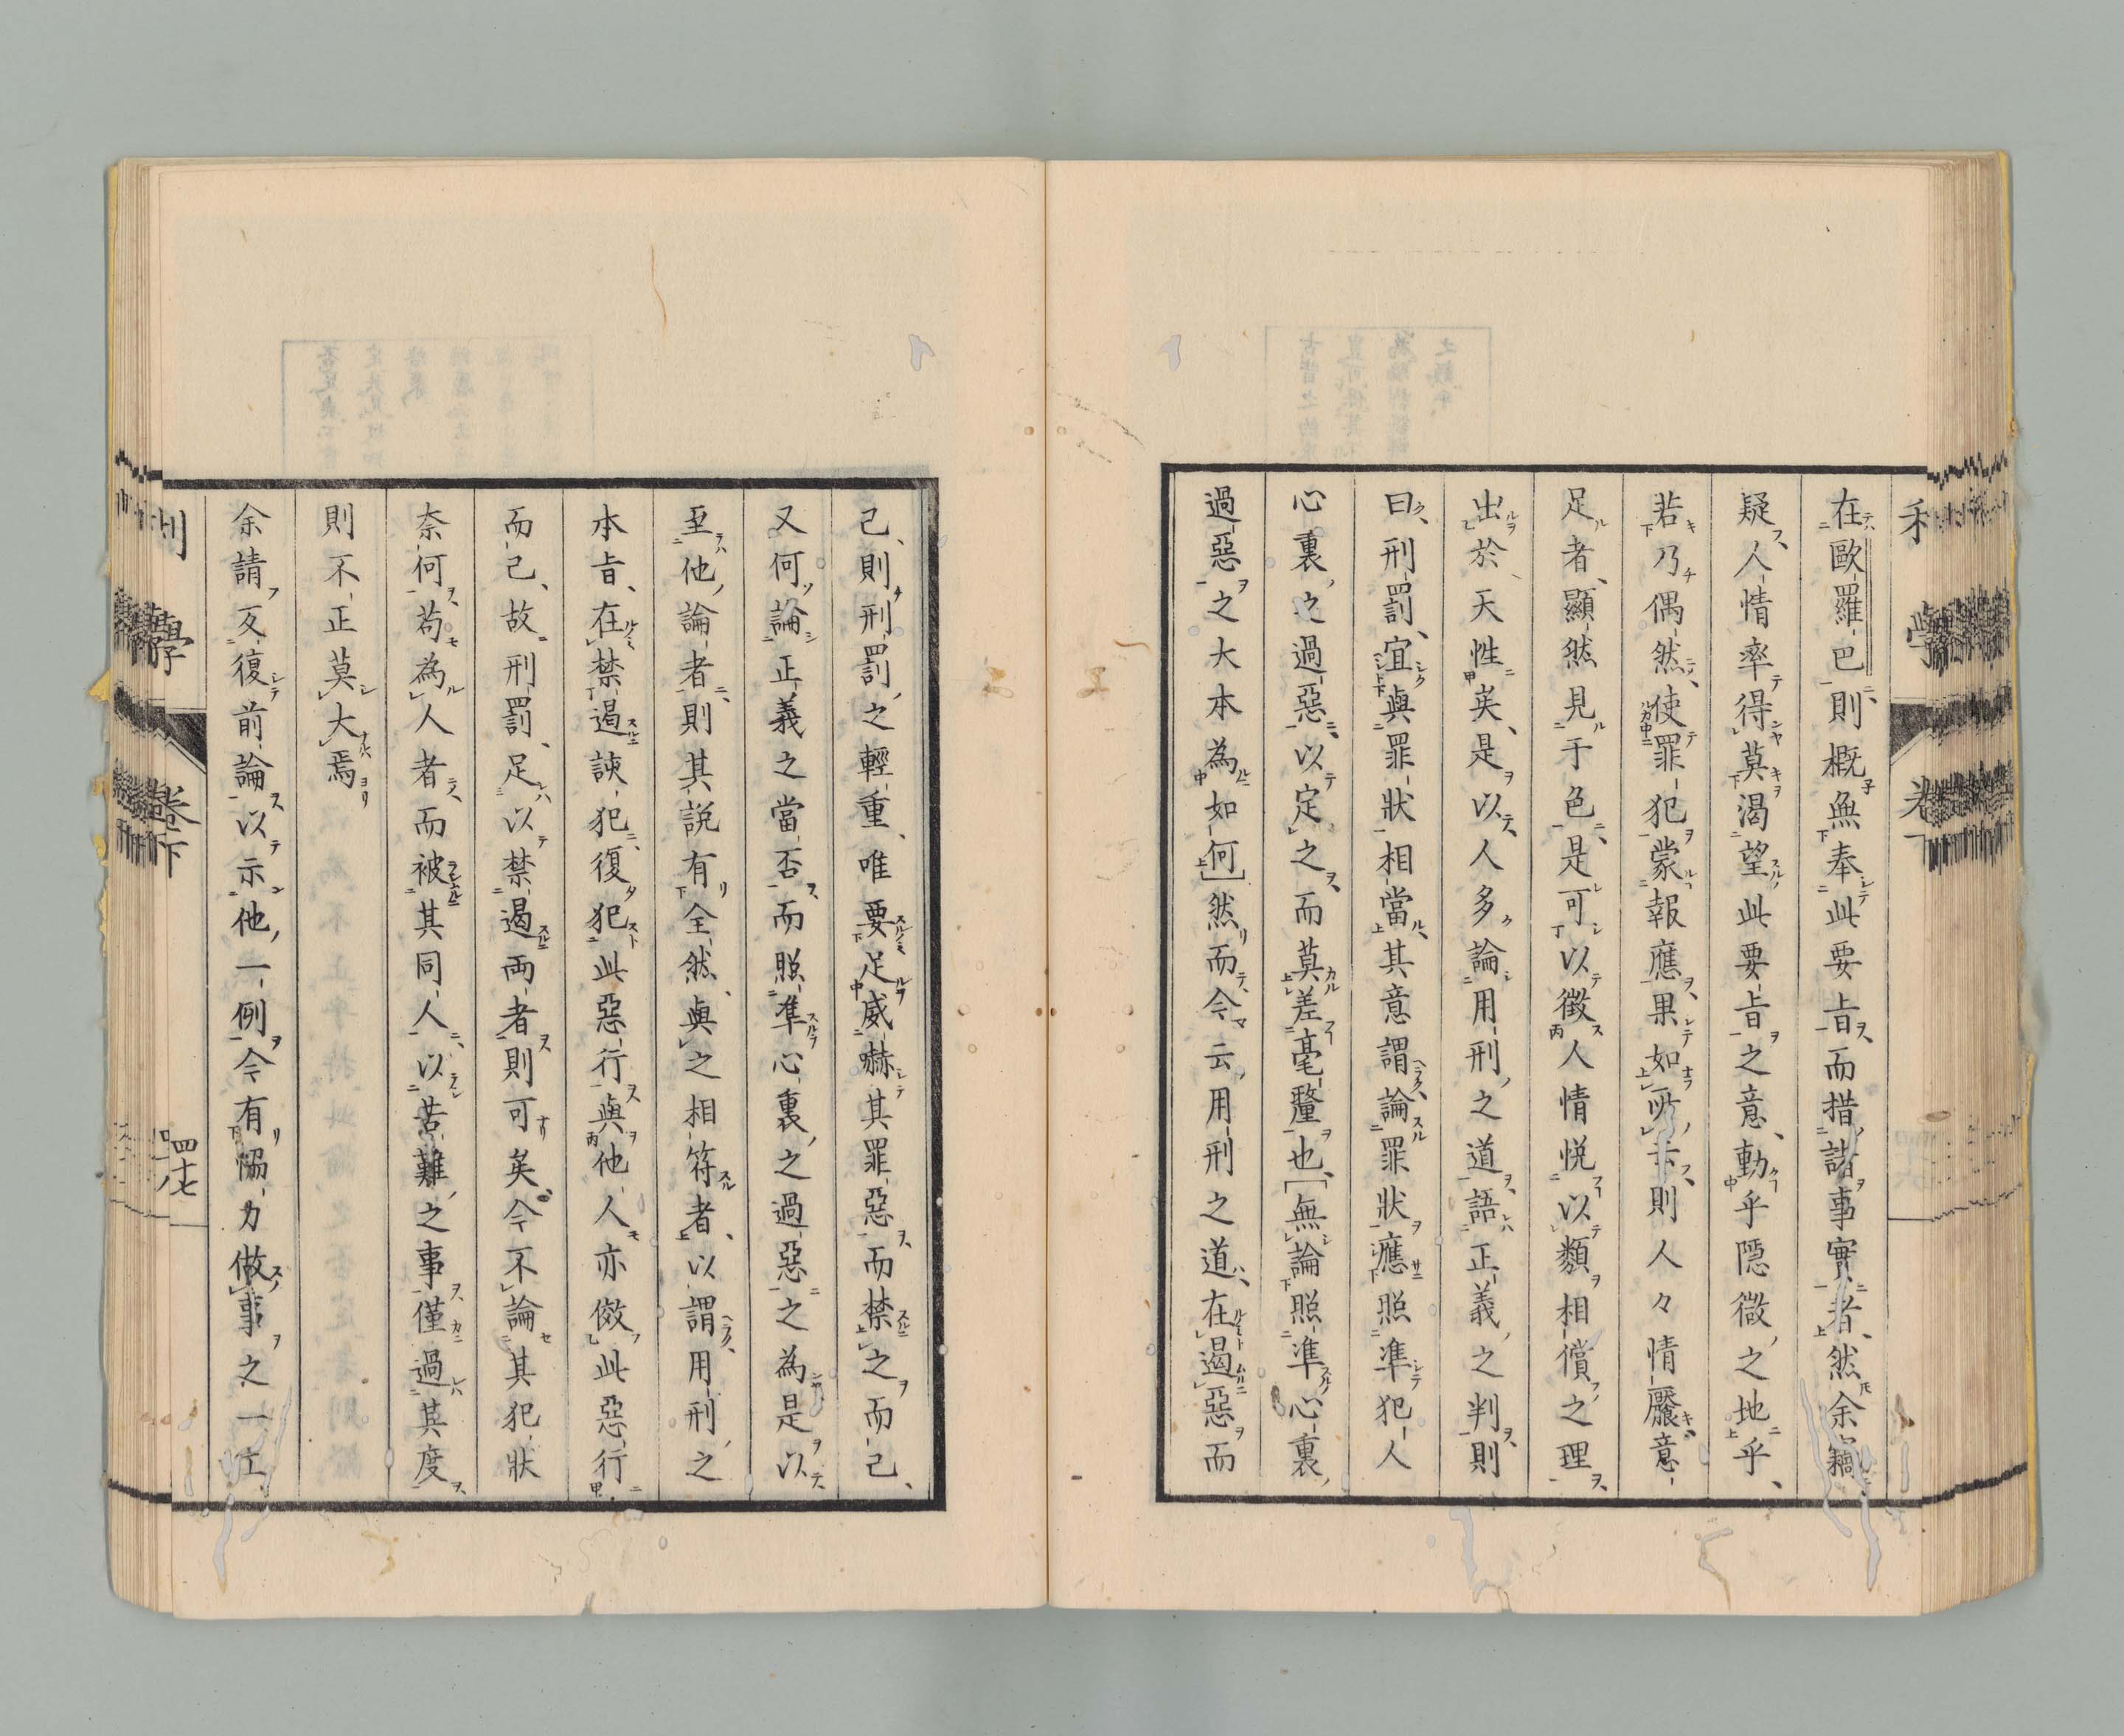 在歐羅巴則概無奉此要旨而措諸事實者然余竊
疑人情率得莫渴望此要旨之意動乎隱微之地乎
若乃偶然使罪犯蒙報應果如所云則人々情懕意
足者顯然見于色是可以徴人情悦以類相償之理
出於天性矣是以人多論用刑之道語正義之判則
曰刑罰宜與罪狀相當其意謂論罪狀應照準犯人
心裏之過惡以定之而莫差毫釐也無論照準心裏
過惡之大本為如何然而今云用刑之道在遏惡而
已則刑罰之輕重唯要足威嚇其罪惡而禁之而已
又何論正義之當否而照準心裏之過惡之為是以
至他論者則其説有全然與之相符者以謂用刑之
本旨在禁遏諛犯復犯此惡行與他人亦傚此惡行
而已故刑罰足以禁遏両者則可矣今不論其犯狀
奈何苟為人者而被其同人以苦難之事僅過其度
則不正莫大焉
余請反復前論以示他一例今有恊力做事之一工
刑
學
卷下
四十七